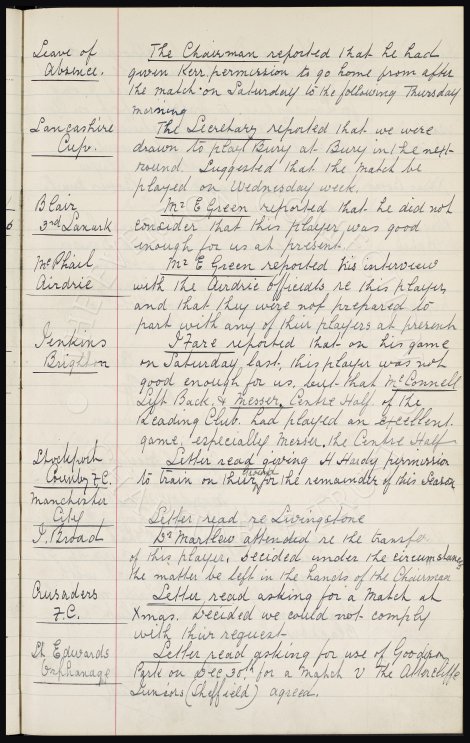 Leave of
Absence.
The Chairman reported that he had
given Kerr. permission to go home from after
the match on Saturday to the following Thursday
morning
Lancashire
Cup.
The Secretary reported that we were
drawn to play Bury at Bury in the next
round. Suggested that the match be
played on Wednesday week.
Blair
3rd Lanark
Mr E Green reported that he did not
consider that this player was good
enough for us at present.
McPhail
Airdrie
Mr E Green reported his interview
with the Airdrie officials re this player,
and that they were not prepared to
part with any of their players at present
Jenkins
Brighton
J Fare reported that on his game
on Saturday last, this player was not
good enough for us, but that McConnell
Left Back, & Messer, Centre Half of the
Reading Club. had played an excellent
game, especially Messer, the Centre Half
Stockport
County F.C.
Letter read giving H Hardy permission
to train on their ground for the remainder of this Season
Manchester
City
Letter read re Livingstone
J. Broad
Dr Marthew attended re the transfer
of this player, Decided under the circumstances
the matter be left in the hands of the Chairman
Crusaders
F.C.
Letter read asking for a match at
Xmas. Decided we could not comply
with their request
St Edwards
Orphanage
Letter read asking for use of Goodison
Park on Dec 30th for a match v The Attercliffe
Juniors (Sheffield) agreed.